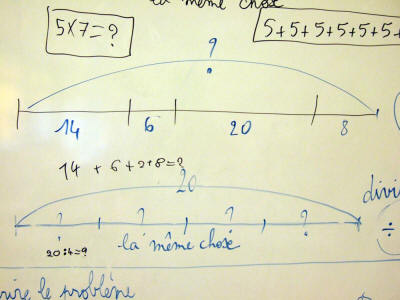 la même chose
5×7=? 5+5+5+5+5+5+
?
14 6 20 8
14 + 6 + 2+8=?
20
? ? ? ?
20:4=? la même chose
÷
rire le problème